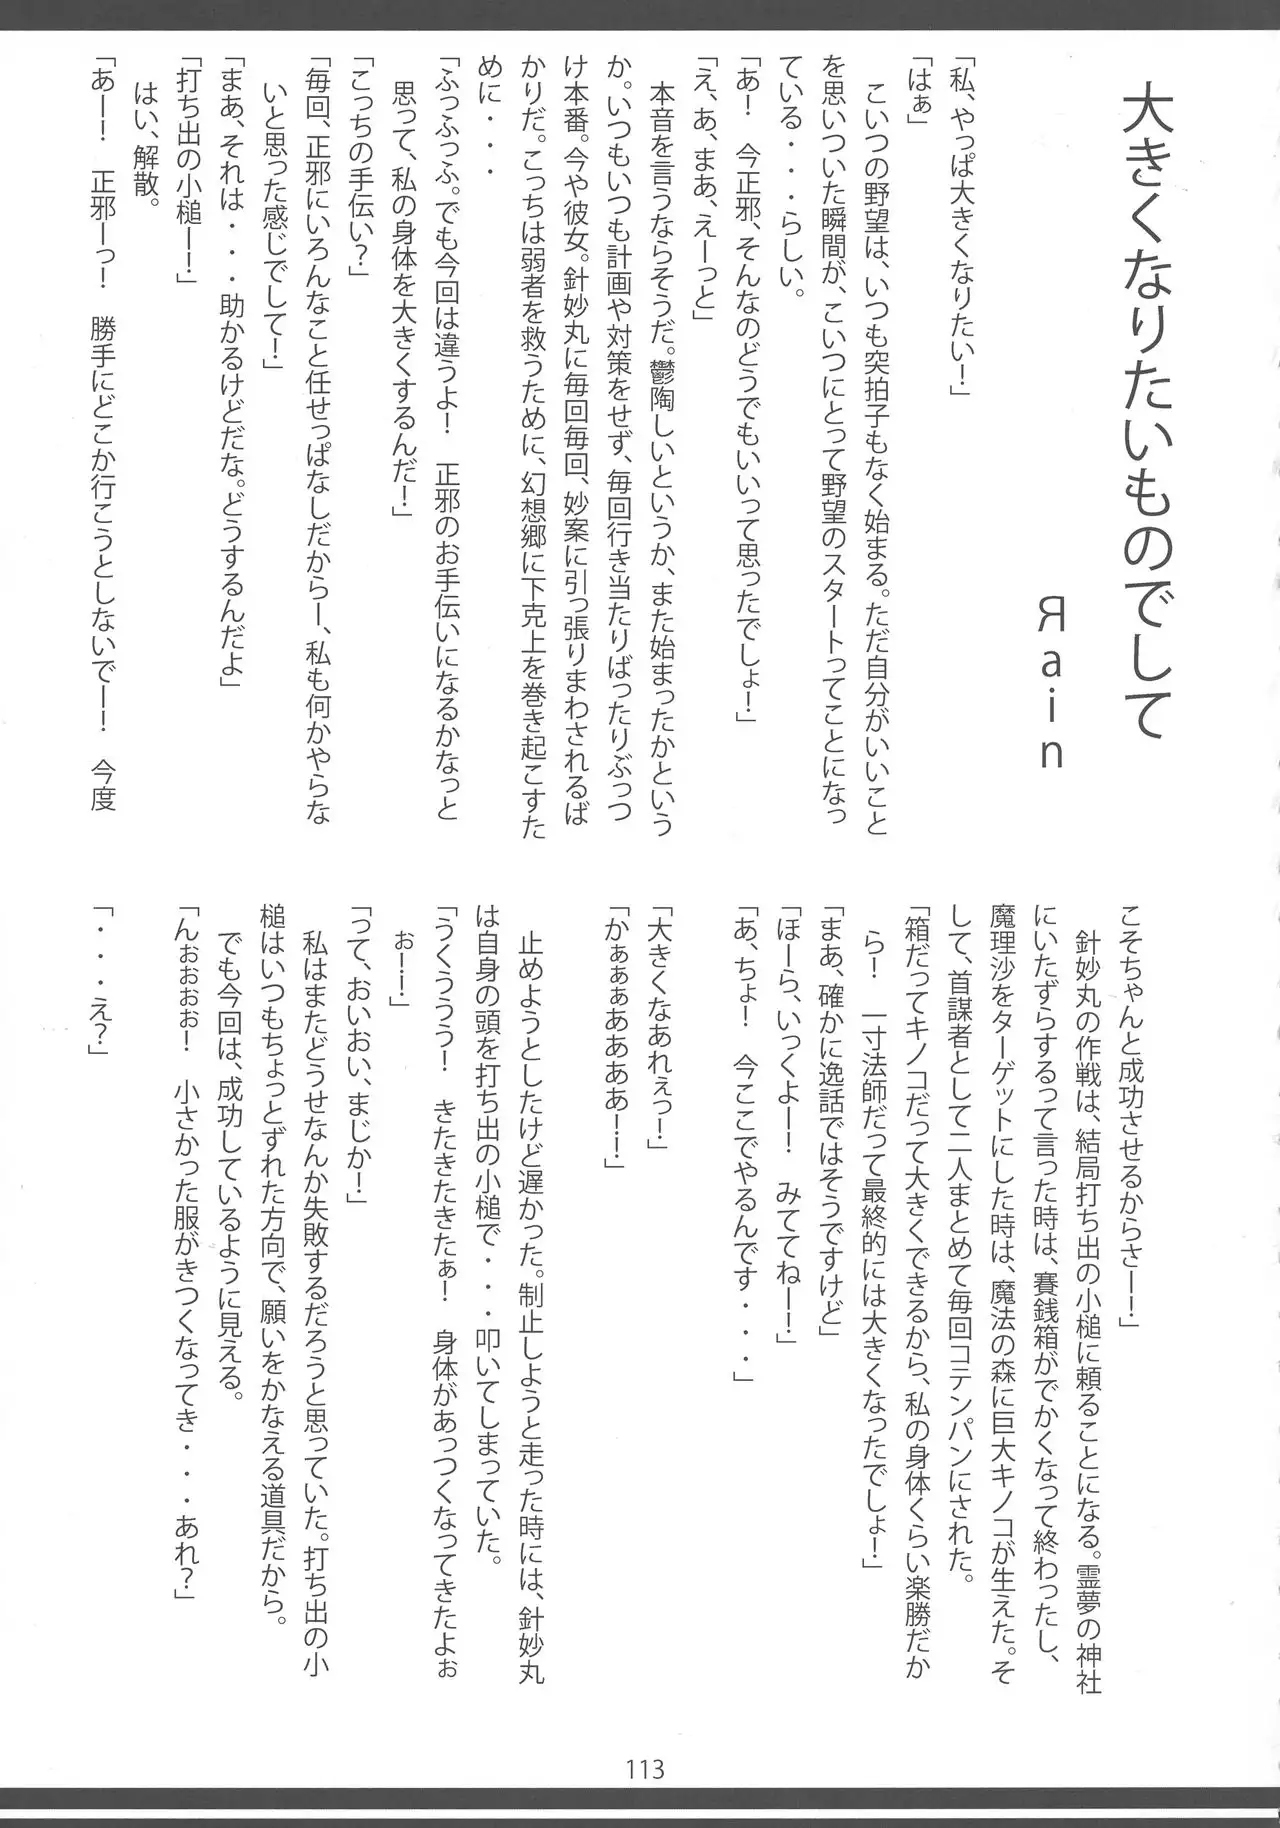 大きくなりたいものでして
Яain
「私、やっぱ大きくなりたい！」
「はぁ」
　こいつの野望は、いつも突拍子もなく始まる。ただ自分がいいこと
を思いついた瞬間が、こいつにとって野望のスタートってことになっ
ている・・・らしい。
「あ！　今正邪、そんなのどうでもいいって思ったでしょ！」
「え、あ、まあ、えーっと」
　本音を言うならそうだ。鬱陶しいというか、また始まったかという
か。いつもいつも計画や対策をせず、毎回行き当たりばったりぶっつ
け本番。今や彼女。針妙丸に毎回毎回、妙案に引っ張りまわされるば
かりだ。こっちは弱者を救うために、幻想郷に下克上を巻き起こすた
めに・・・
「ふっふっふ。でも今回は違うよ！　正邪のお手伝いになるかなっと
　思って、私の身体を大きくするんだ！」
「こっちの手伝い？」
「毎回、正邪にいろんなこと任せっぱなしだからー、私も何かやらな
　いと思った感じでして！」
「まあ、それは・・・助かるけどだな。どうするんだよ」
「打ち出の小槌ー！」
　はい、解散。
「あー！　正邪ーっ！　勝手にどこか行こうとしないでー！　今度
こそちゃんと成功させるからさー！」
　針妙丸の作戦は、結局打ち出の小槌に頼ることになる。霊夢の神社
にいたずらするって言った時は、賽銭箱がでかくなって終わったし、
魔理沙をターゲットにした時は、魔法の森に巨大キノコが生えた。そ
して、首謀者として二人まとめて毎回コテンパンにされた。
「箱だってキノコだって大きくできるから、私の身体くらい楽勝だか
　ら！　一寸法師だって最終的には大きくなったでしょ！」
「まあ、確かに逸話ではそうですけど」
「ほーら、いっくよー！　みててねー！」
「あ、ちょ！　今ここでやるんです・・・」
「大きくなあれぇっ！」
「かぁぁぁあああー！」
　止めようとしたけど遅かった。制止しようと走った時には、針妙丸
は自身の頭を打ち出の小槌で・・・叩いてしまっていた。
「うくううう！　きたきたきたぁ！　身体があっつくなってきたよぉ
　ぉー！」
「って、おいおい、まじか！」
　私はまたどうせなんか失敗するだろうと思っていた。打ち出の小
槌はいつもちょっとずれた方向で、願いをかなえる道具だから。
　でも今回は、成功しているように見える。
「んぉぉぉぉ！　小さかった服がきつくなってき・・・あれ？」
「・・・え？」
113